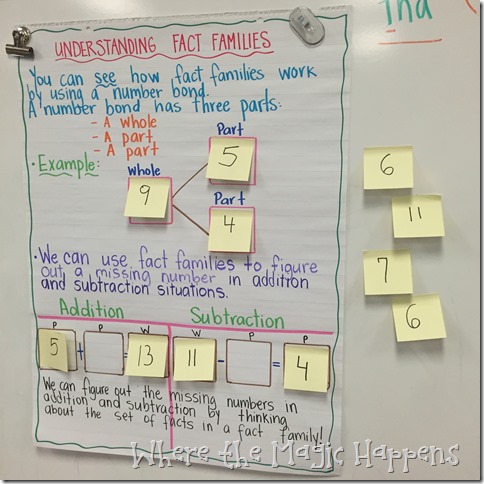 UNDERSTANDING FACT FAMILIES
You can see how fact families work
by using a number bond.
A number bond has three parts:
- A whole
- A part
- A part
• Example:
Whole
9
Part
5
Part
4
• We can use fact families to figure
out a missing number in addition
and subtraction situations.
Addition
P P W
5 + = 13
Subtraction
W P P
11 - = 4
We can figure out the missing numbers in
addition and subtraction by thinking
about the set of facts in a fact family!
6
11
7
6
Where the Magic Happens